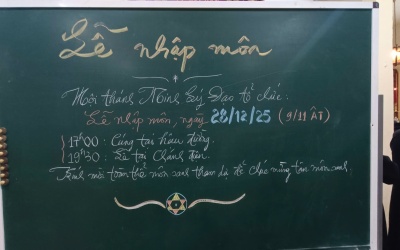 Lễ nhập môn
Môn thánh Minh Lý Đạo tổ chức:
Lễ nhập môn, ngày 28/12/25 (9/11 ÂL)
17h00 : Cúng tại hậu đường.
19h30 : Lễ tại Chánh điện.
Kính mời toàn thể môn sanh tham dự để chúc mừng tân môn sanh.